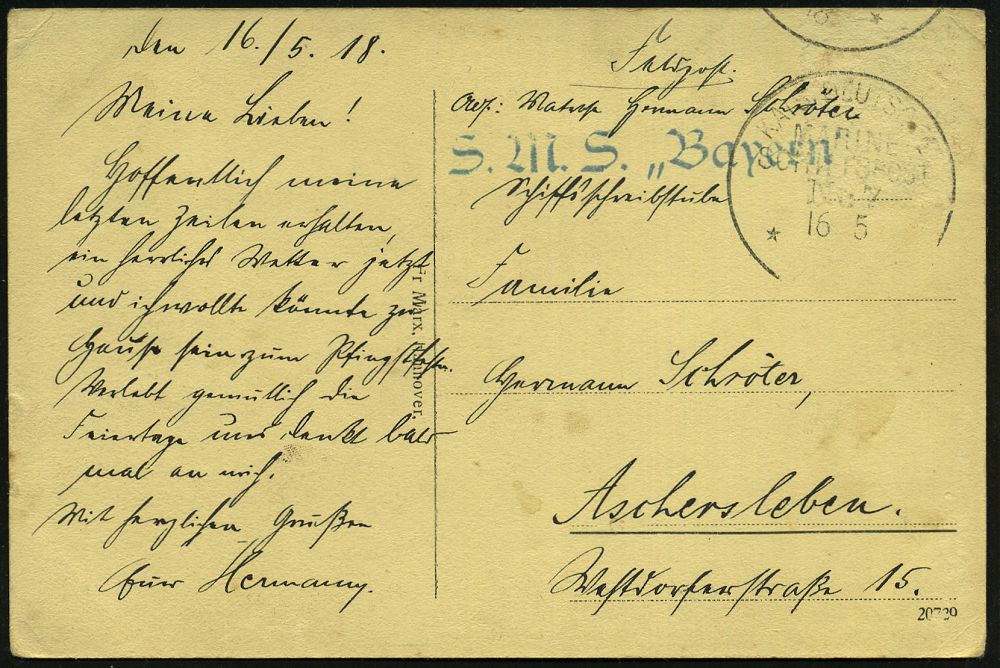 den 16./5. 18.
Meine Lieben!
Hoffentlich meine
letzten Zeilen erhalten,
ein herrliches Wetter jetzt
und ich wollte könnte zu
Hause sein zum Pfingstfeste.
Verlebt gemütlich die
Feiertage und denkt bald
mal an mich.
Mit herzlichen Grüßen
Euer Hermann.
Fr Marx, Hannover.
Feldpost.
Abs: Matrose Hermann Schröter
S. M. S. „Bayern
Schiffsschreibstube
KAIS. DEUTSCHE
MARINE
SCHIFFSPOST
No 7
16 5
Familie
Hermann Schröter,
Aschersleben.
Westdorferstraße 15.
20729